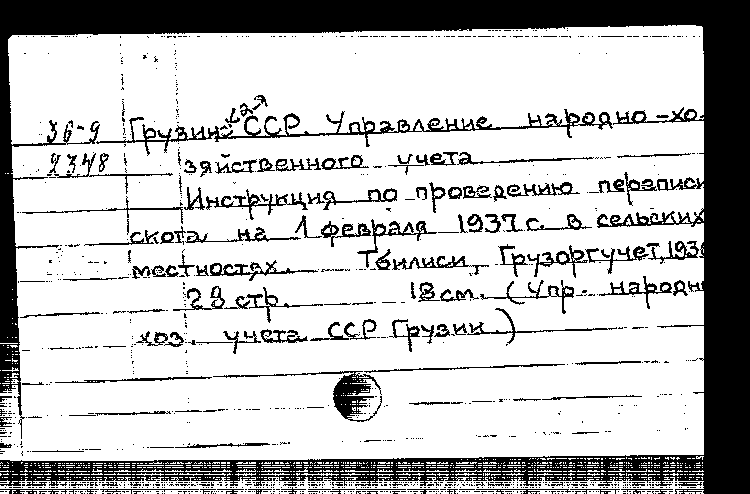 36-9 Грузин. ССР. Управление народно-хо-
2348 зяйственного учета
Инструкция по проведению переписи
скота на 1 февраля 1937 г. в сельских
местностях. Тбилиси, Грузоргучет, 193
29 стр. 18 см. (Упр. народн
хоз. учета ССР Грузии.)